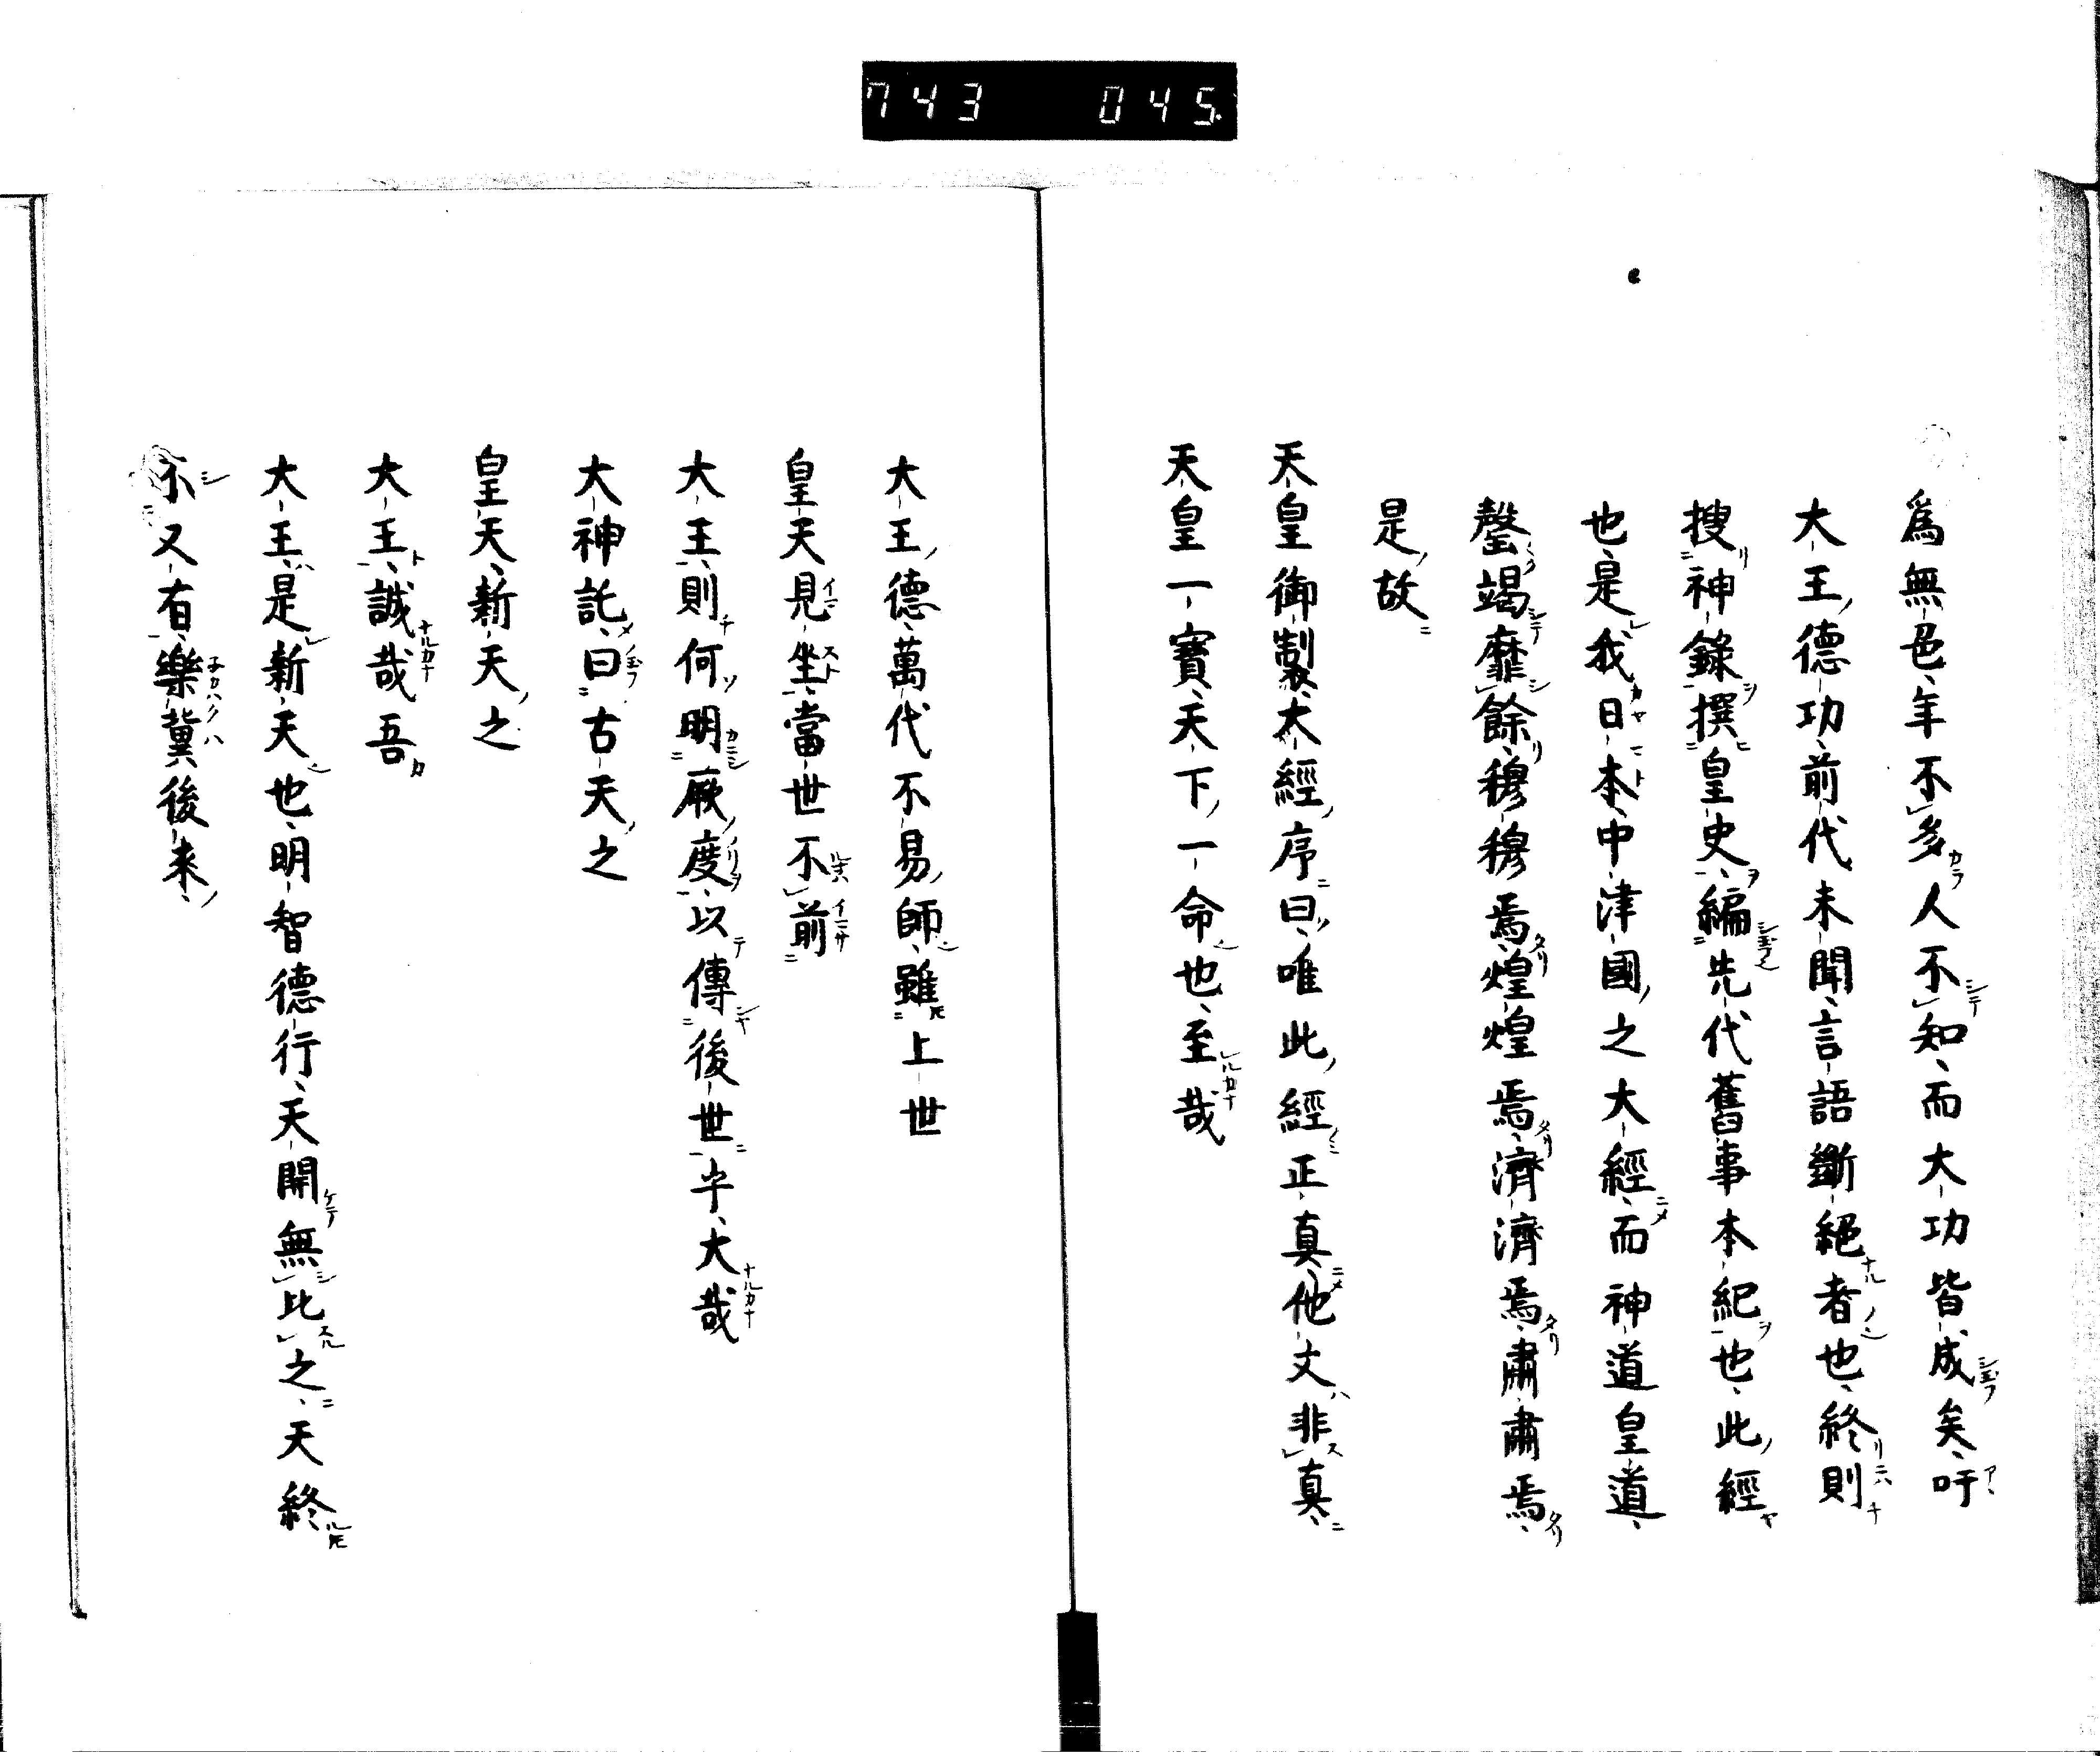 743 045.
為無色年不多人不知而大功皆成矣吁
大王德功前代未聞言語斷絕者也終則
搜神錄撰皇史編先代舊事本紀也此經
也是我日本中津國之大經而神道皇道
罄竭靡餘穆穆焉煌煌焉濟濟焉肅肅焉
是故
天皇御製大經序曰唯此經正真他丈非真
天皇一寶天下一命也至哉
大王德萬代不易師雖上世
皇天見坐當世不前
大王則何明厥度以傳後世乎大哉
大神託曰古天之
皇天新天之
大王誠哉吾
大王是新天也明智德行天開無比之天終
不又有樂冀後来